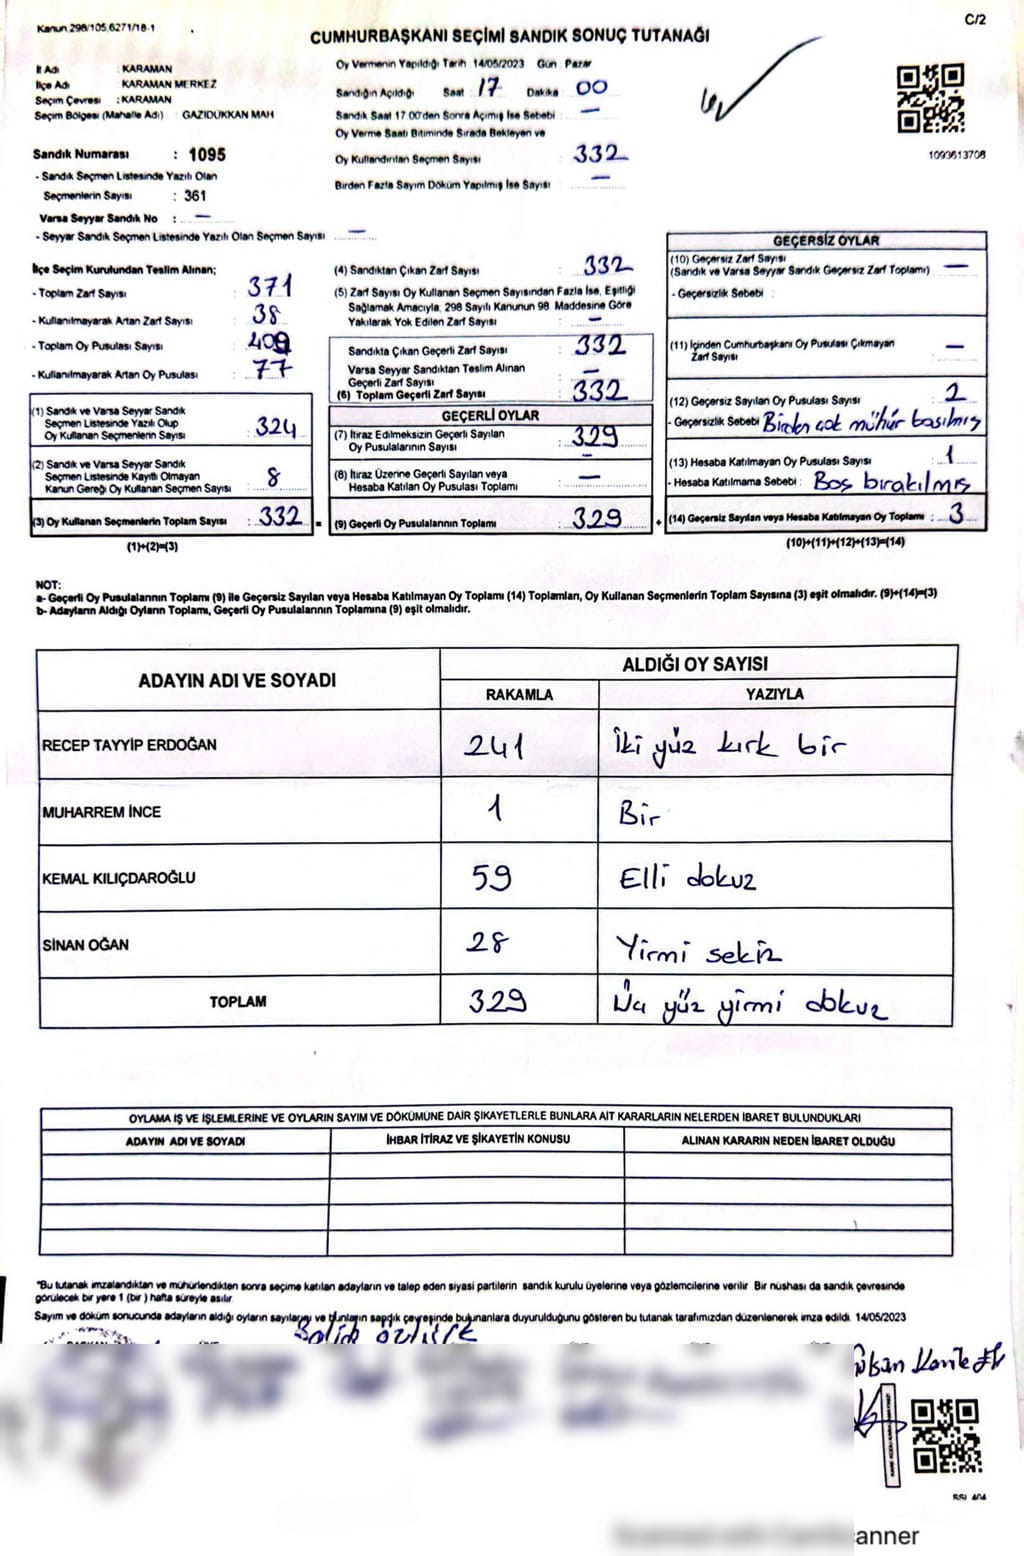 Kanun 298/105,6271/18-1
C/2
CUMHURBAŞKANI SEÇİMİ SANDIK SONUÇ TUTANAĞI
İl Adı : KARAMAN
İlçe Adı KARAMAN MERKEZ
Seçim Çevresi : KARAMAN
Seçim Bölgesi (Mahalle Adı) : GAZİDÜKKAN MAH
Sandık Numarası : 1095
- Sandık Seçmen Listesinde Yazılı Olan
Seçmenlerin Sayısı : 361
Varsa Seyyar Sandık No : —
- Seyyar Sandık Seçmen Listesinde Yazılı Olan Seçmen Sayısı —
Oy Vermenin Yapıldığı Tarih 14/05/2023 Gün : Pazar
Sandığın Açıldığı Saat : 17 Dakika : 00
Sandık Saat 17:00'den Sonra Açılmış İse Sebebi : —
Oy Verme Saati Bitiminde Sırada Bekleyen ve
Oy Kullandırılan Seçmen Sayısı 332
Birden Fazla Sayım Döküm Yapılmış İse Sayısı : —
1093613708
İlçe Seçim Kurulundan Teslim Alınan;
- Toplam Zarf Sayısı : 371
- Kullanılmayarak Artan Zarf Sayısı : 38
- Toplam Oy Pusulası Sayısı : 409
- Kullanılmayarak Artan Oy Pusulası : 77
(1) Sandık ve Varsa Seyyar Sandık
Seçmen Listesinde Yazılı Olup
Oy Kullanan Seçmenlerin Sayısı : 324
(2) Sandık ve Varsa Seyyar Sandık
Seçmen Listesinde Kayıtlı Olmayan
Kanun Gereği Oy Kullanan Seçmen Sayısı : 8
(3) Oy Kullanan Seçmenlerin Toplam Sayısı : 332 =
(1)+(2)=(3)
(4) Sandıktan Çıkan Zarf Sayısı : 332
(5) Zarf Sayısı Oy Kullanan Seçmen Sayısından Fazla İse, Eşitliği
Sağlamak Amacıyla, 298 Sayılı Kanunun 98 Maddesine Göre
Yakılarak Yok Edilen Zarf Sayısı : —
Sandıkta Çıkan Geçerli Zarf Sayısı : 332
Varsa Seyyar Sandıktan Teslim Alınan
Geçerli Zarf Sayısı : —
(6) Toplam Geçerli Zarf Sayısı : 332
GEÇERLİ OYLAR
(7) İtiraz Edilmeksizin Geçerli Sayılan
Oy Pusulalarının Sayısı : 329
(8) İtiraz Üzerine Geçerli Sayılan veya
Hesaba Katılan Oy Pusulası Toplamı : —
(9) Geçerli Oy Pusulalarının Toplamı : 329 +
GEÇERSİZ OYLAR
(10) Geçersiz Zarf Sayısı
(Sandık ve Varsa Seyyar Sandık Geçersiz Zarf Toplamı) : —
- Geçersizlik Sebebi :
(11) İçinden Cumhurbaşkanı Oy Pusulası Çıkmayan
Zarf Sayısı : —
(12) Geçersiz Sayılan Oy Pusulası Sayısı : 2
- Geçersizlik Sebebi Birden çok mühür basılmış
(13) Hesaba Katılmayan Oy Pusulası Sayısı : 1
- Hesaba Katılmama Sebebi : Boş bırakılmış
(14) Geçersiz Sayılan veya Hesaba Katılmayan Oy Toplamı : 3
(10)+(11)+(12)+(13)=(14)
NOT:
a- Geçerli Oy Pusulalarının Toplamı (9) ile Geçersiz Sayılan veya Hesaba Katılmayan Oy Toplamı (14) Toplamları, Oy Kullanan Seçmenlerin Toplam Sayısına (3) eşit olmalıdır. (9)+(14)=(3)
b- Adayların Aldığı Oyların Toplamı, Geçerli Oy Pusulalarının Toplamına (9) eşit olmalıdır.
ADAYIN ADI VE SOYADI
ALDIĞI OY SAYISI
RAKAMLA YAZIYLA
RECEP TAYYİP ERDOĞAN 241 İki yüz kırk bir
MUHARREM İNCE 1 Bir
KEMAL KILIÇDAROĞLU 59 Elli dokuz
SİNAN OĞAN 28 Yirmi sekiz
TOPLAM 329 Üç yüz yirmi dokuz
OYLAMA İŞ VE İŞLEMLERİNE VE OYLARIN SAYIM VE DÖKÜMÜNE DAİR ŞİKAYETLERLE BUNLARA AİT KARARLARIN NELERDEN İBARET BULUNDUKLARI
ADAYIN ADI VE SOYADI İHBAR İTİRAZ VE ŞİKAYETİN KONUSU ALINAN KARARIN NEDEN İBARET OLDUĞU
"Bu tutanak imzalandıktan ve mühürlendikten sonra seçime katılan adayların ve talep eden siyasi partilerin sandık kurulu üyelerine veya gözlemcilerine verilir. Bir nüshası da sandık çevresinde
görülecek bir yere 1 (bir) hafta süreyle asılır.
Sayım ve döküm sonucunda adayların aldığı oyların sayılarını ve bunların sandık çevresinde bulunanlara duyurulduğunu gösteren bu tutanak tarafımızdan düzenlenerek imza edildi. 14/05/2023